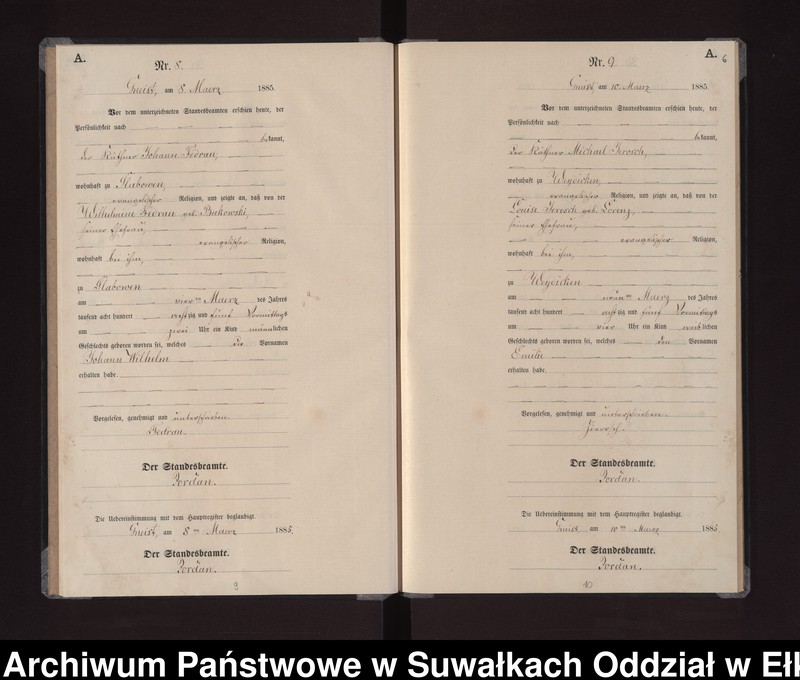 A.
Nr. 8.
Gneist, am 8. Maerz 1885.
Vor dem unterzeichneten Standesbeamten erschien heute, der
Persönlichkeit nach
bekannt,
der Käthner Johann Fedrau,
wohnhaft zu Slabowen,
evangelischer Religion, und zeigte an, daß von der
Wilhelmine Fedrau geb. Bukowski,
seiner Ehefrau,
evangelischer Religion,
wohnhaft bei ihm,
zu Slabowen
am vierten Maerz des Jahres
tausend acht hundert achtzig und fünf Vormittags
um zwei Uhr ein Kind männlichen
Geschlechts geboren worden sei, welches die Vornamen
Johann Wilhelm
erhalten habe.
Vorgelesen, genehmigt und unterschrieben.
Fedrau.
Der Standesbeamte.
Jordan.
Die Uebereinstimmung mit dem Hauptregister beglaubigt.
Gneist, am 8ten Maerz 1885.
Der Standesbeamte.
Jordan.
9
A. 6
Nr. 9
Gneist am 10. Maerz 1885.
Vor dem unterzeichneten Standesbeamten erschien heute, der
Persönlichkeit nach
bekannt,
der Käthner Michael Jerosch,
wohnhaft zu Weydicken,
evangelischer Religion, und zeigte an, daß von der
Louise Jerosch geb. Lorenz,
seiner Ehefrau,
evangelischer Religion,
wohnhaft bei ihm,
zu Weydicken
am neunten Maerz des Jahres
tausend acht hundert achtzig und fünf Vormittags
um vier Uhr ein Kind weiblichen
Geschlechts geboren worden sei, welches den Vornamen
Emilie
erhalten habe.
Vorgelesen, genehmigt und unterschrieben.
Der Standesbeamte.
Jordan.
Die Uebereinstimmung mit dem Hauptregister beglaubigt.
Gneist am 10ten Maerz 1885.
Der Standesbeamte.
Jordan.
10
Archiwum Państwowe w Suwałkach Oddział w Ełk